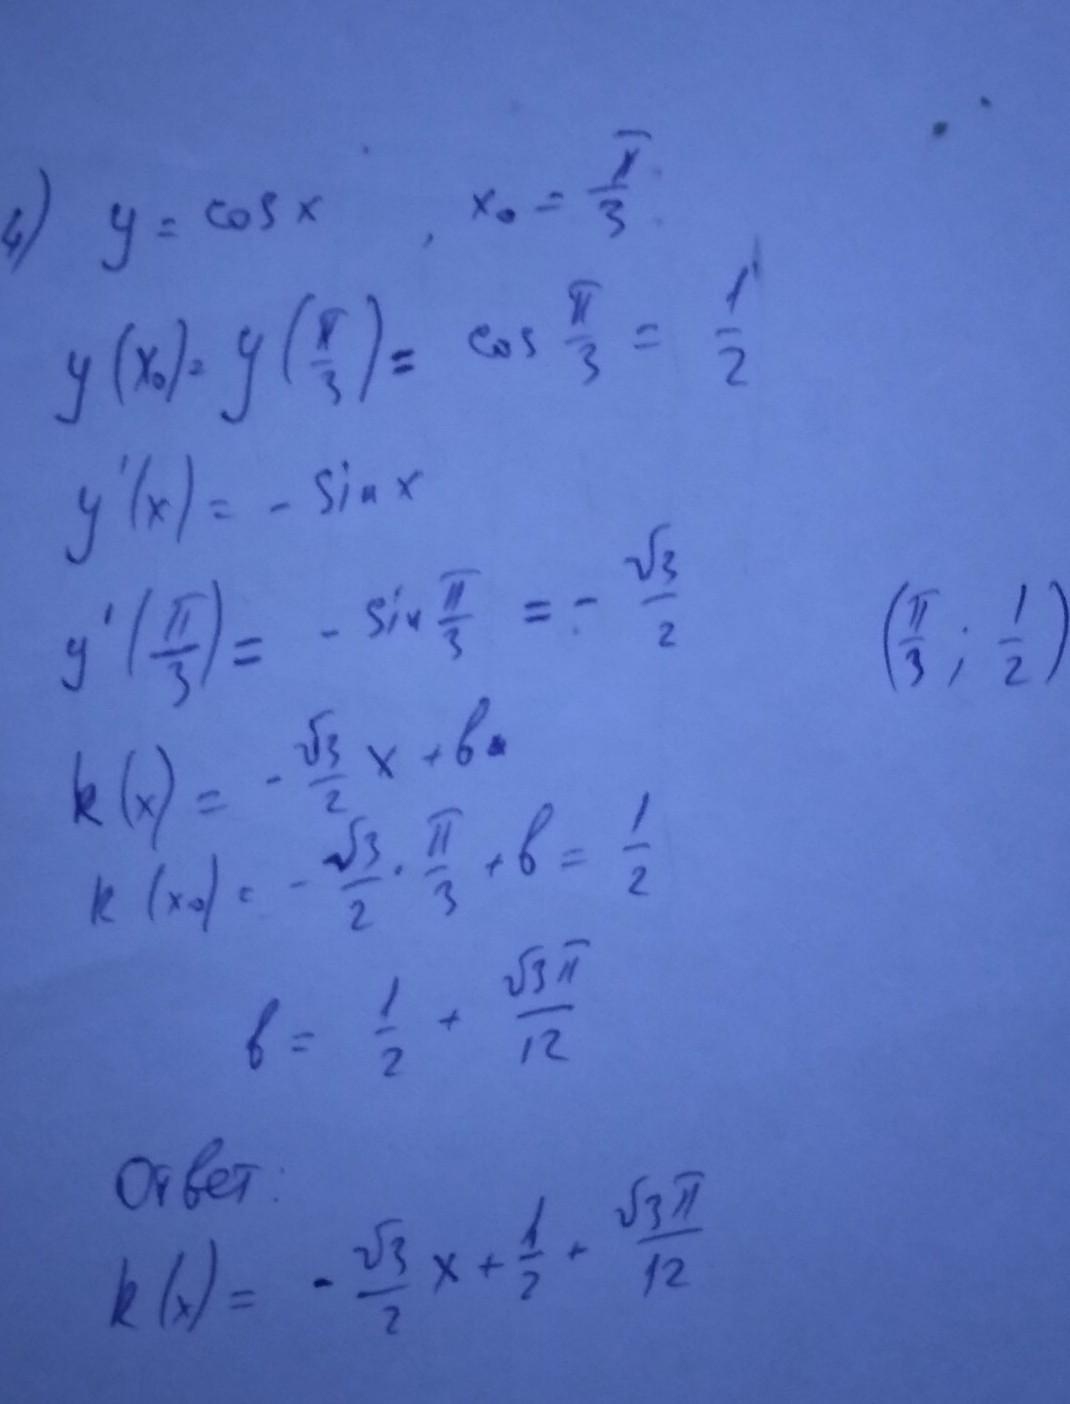 4) y = cos x , x₀ = π/3
y(x₀) = y(π/3) = cos π/3 = 1/2
y'(x) = - sin x
y'(π/3) = - sin π/3 = - √3/2 (π/3 ; 1/2)
k(x) = - √3/2 x + b
k(x₀) = - √3/2 · π/3 + b = 1/2
b = 1/2 + √3π/12
Ответ:
k(x) = - √3/2 x + 1/2 + √3π/12